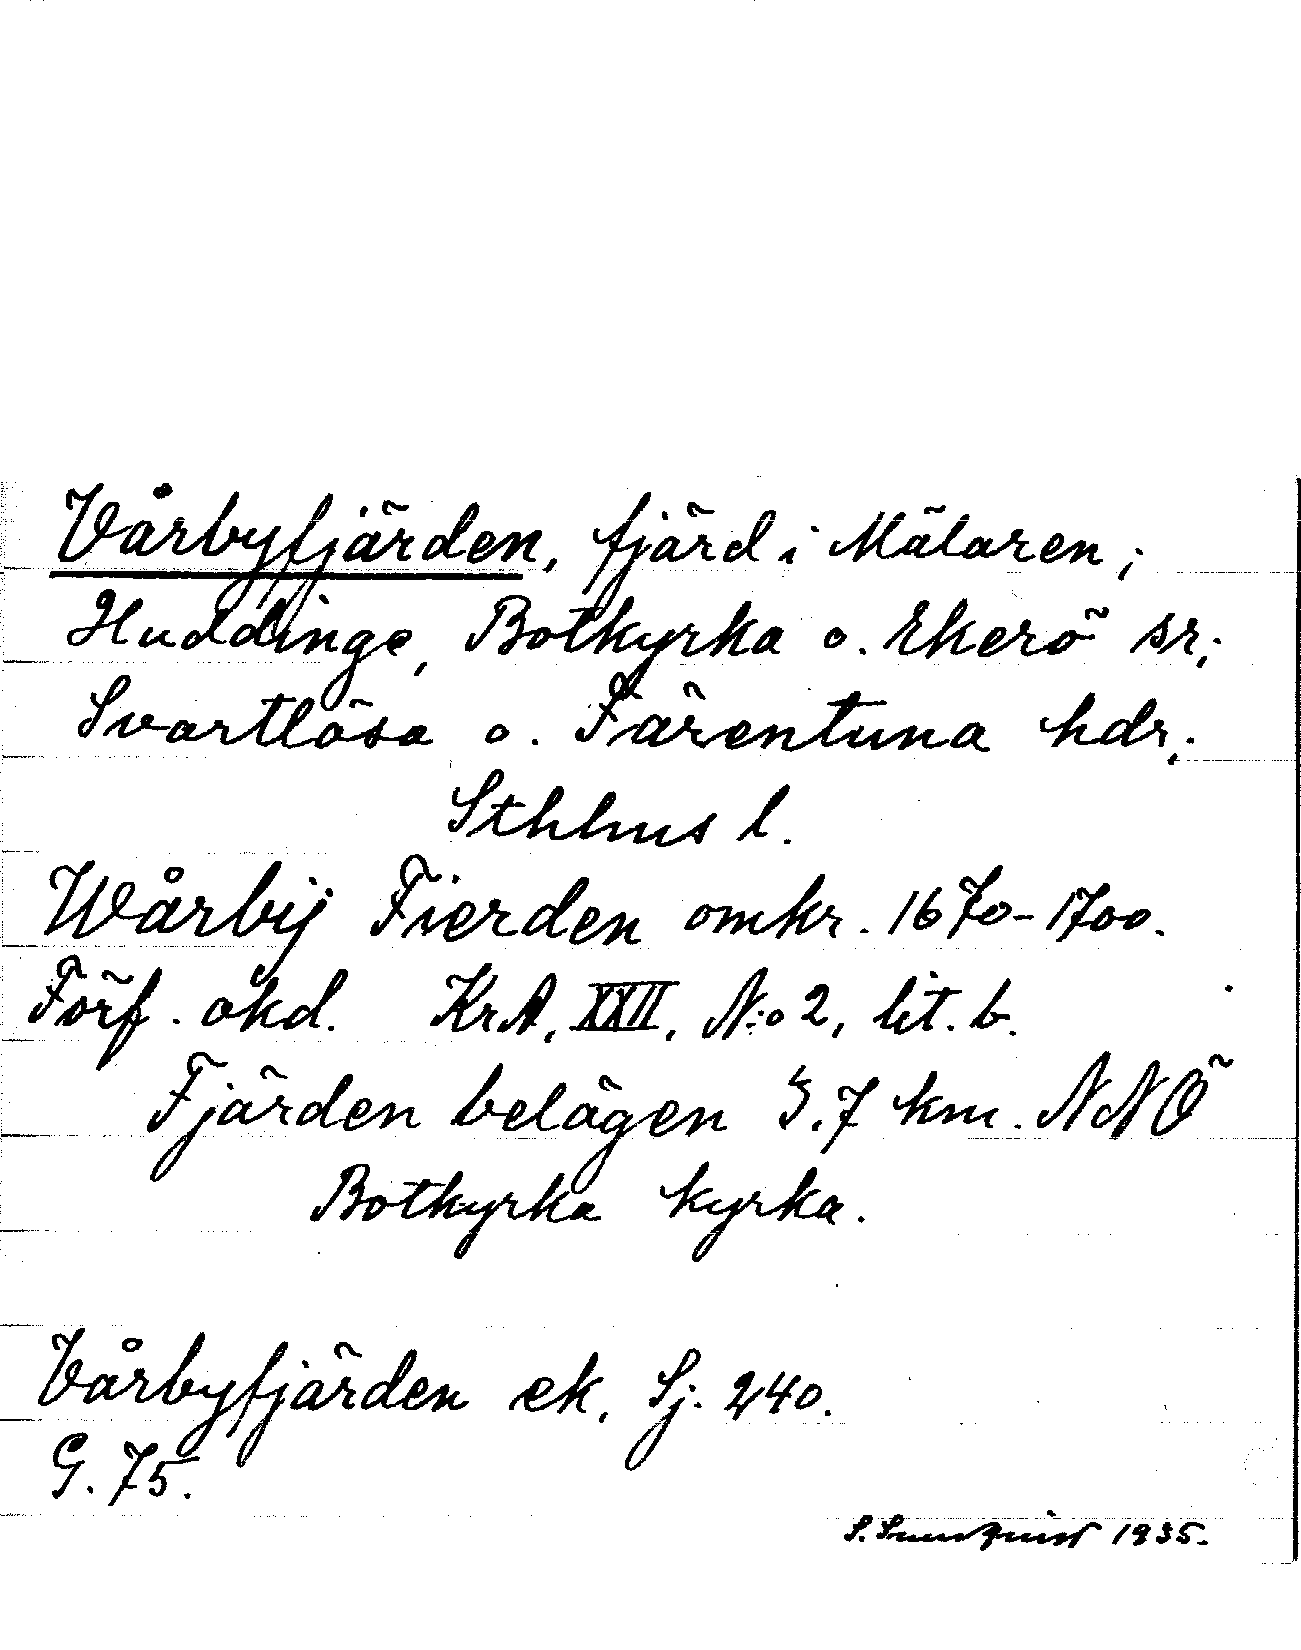 Vårbyfjärden, fjärd i Mälaren;
Huddinge, Botkyrka o. Ekerö sr;
Svartlösa o. Färentuna hdr;
Sthlms l.
Wårbij Fierden omkr. 1670-1700.
Förf. okd. KrA, XXII, N:o 2, lit. b.
Fjärden belägen 5.7 km. NNÖ
Botkyrka kyrka.
Vårbyfjärden ek. Sj. 240.
G. 75.
1935.